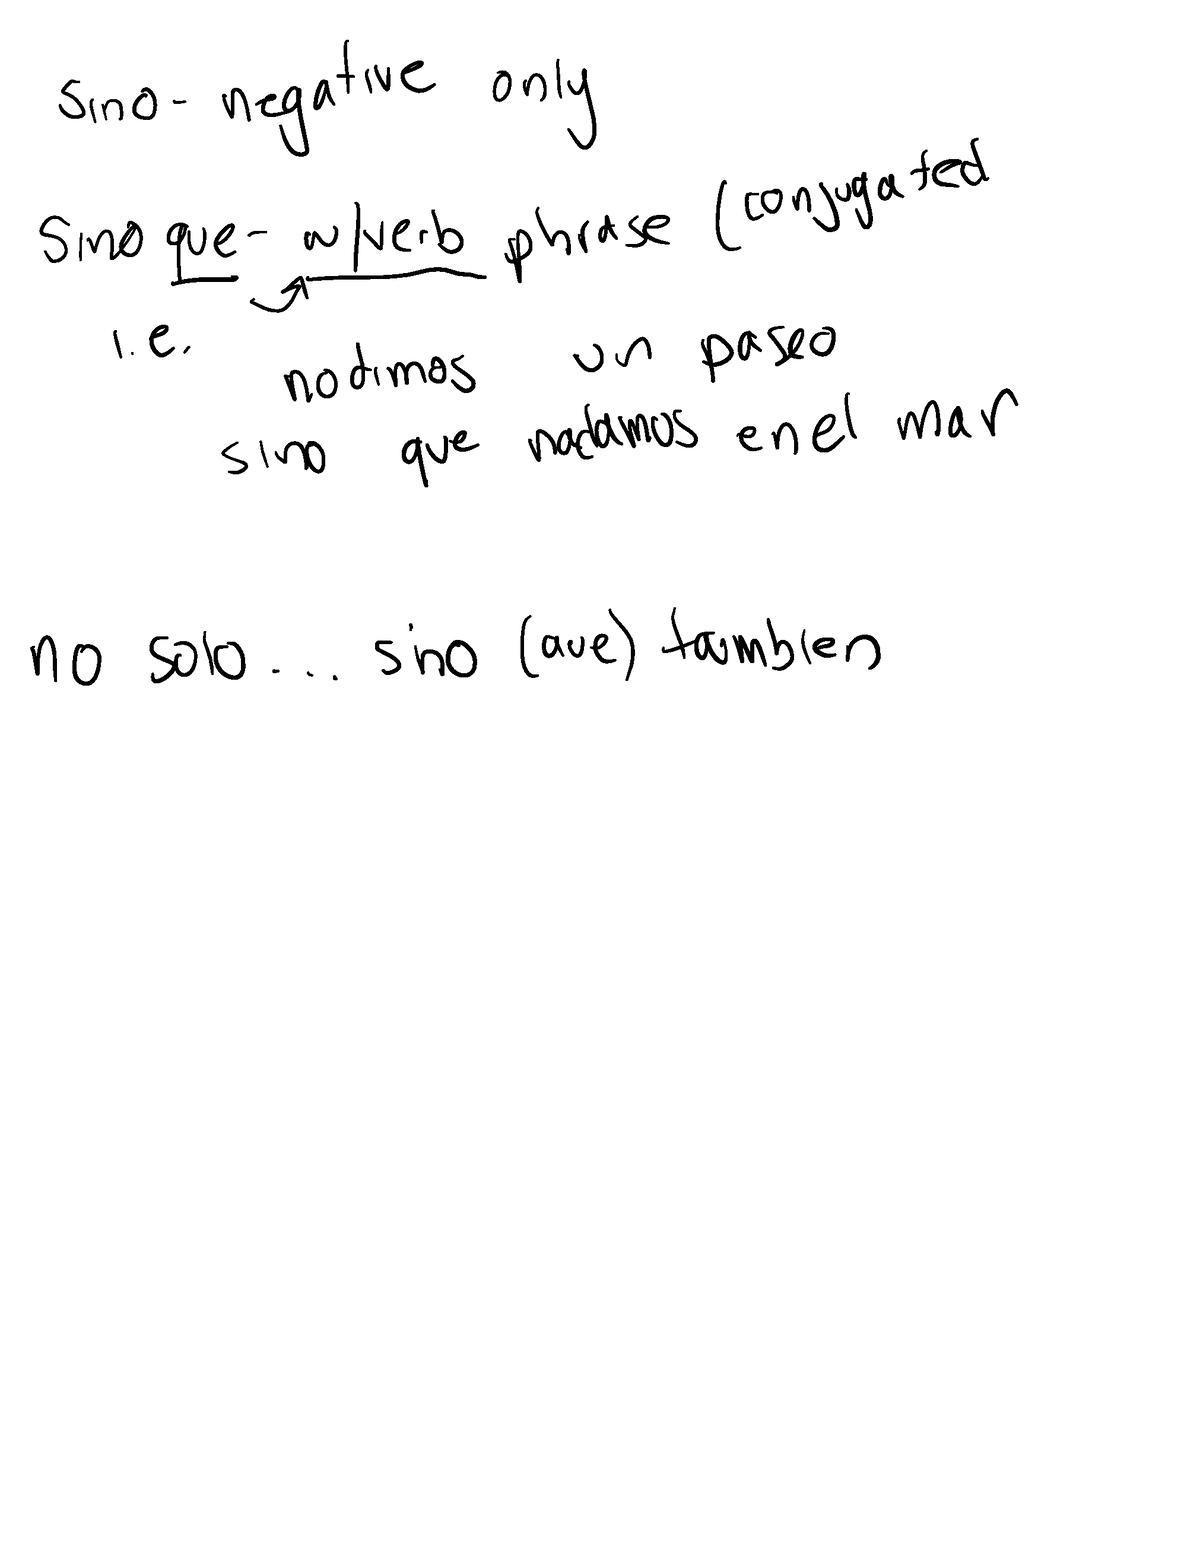 Sino - negative only
Sino que - w/verb phrase (conjugated
i.e.
no dimos un paseo
sino que nadamos en el mar
no solo... sino (que) tambien